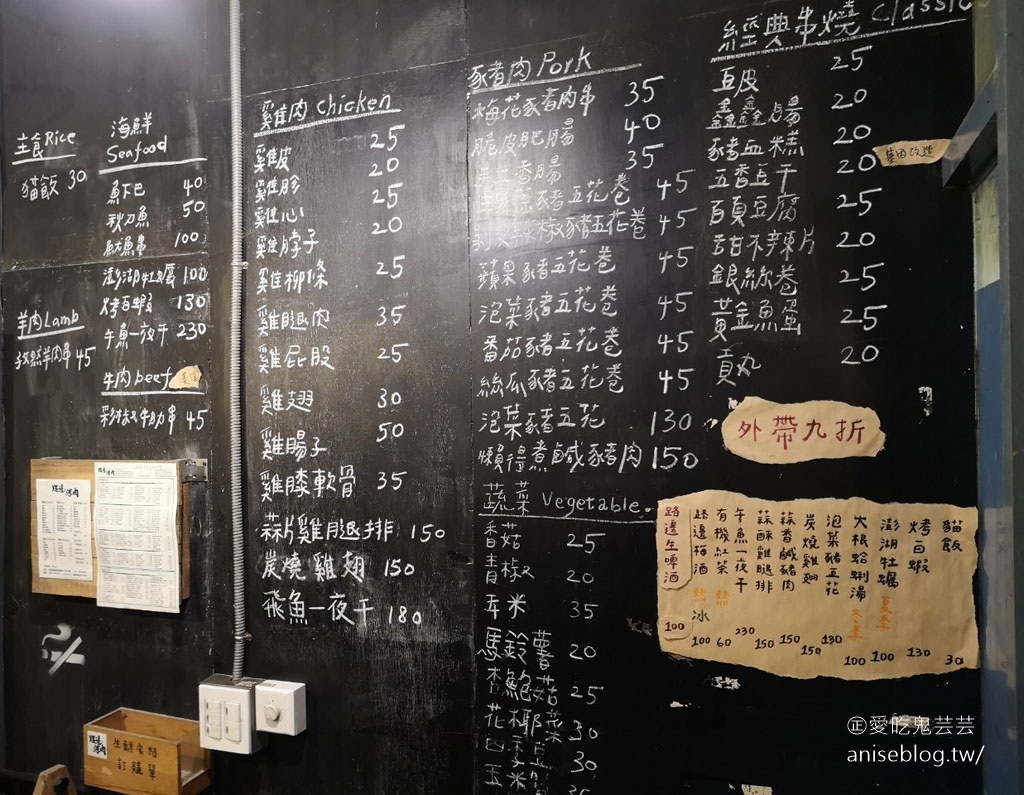 主食Rice
猫飯 30
羊肉Lamb
孜然羊肉串 45
海鮮
Seafood
魚下巴 40
秋刀魚 50
魷魚串 100
澎湖牡蠣 100
烤百蝦 130
午魚一夜干 230
牛肉beef
彩椒牛肋串 45
雞肉 Chicken
雞皮 25
雞胗 20
雞心 25
雞脖子 20
雞柳條 25
雞腿肉 35
雞屁股 25
雞翅 30
雞腸子 50
雞膝軟骨 35
蒜片雞腿排 150
炭燒雞翅 150
飛魚一夜干 180
豬肉 Pork
梅花豬肉串 35
脆皮肥腸 40
香腸 35
豬五花卷 45
剝皮辣椒豬五花卷 45
蘋果豬五花卷 45
泡菜豬五花卷 45
番茄豬五花卷 45
絲瓜豬五花卷 45
泡菜豬五花 130
懶得煮鹹豬肉 150
蔬菜 Vegetable.
香菇 25
青椒 20
玉米 35
馬鈴薯 20
杏鮑菇 25
花椰菜 30
四季豆 30
玉米筍 35
經典串燒 Classic
豆皮 25
鑫鑫腸 20
豬血糕 20
五香豆干 20
百頁豆腐 25
甜不辣片 20
銀絲卷 25
黃金魚蛋 25
貢丸 20
外帶九折
貓飯 30
烤百蝦 130
澎湖牡蠣 夏季 100
大根蛤蜊湯 冬季 100
泡菜豬五花 130
炭燒雞翅 150
蒜香鹹豬肉 150
蒜酥雞腿排 150
午魚一夜干 230
有機紅茶 60
路邊梅酒 冰 100
路邊生啤酒 100
路邊烤肉
㊣愛吃鬼芸芸
aniseblog.tw/